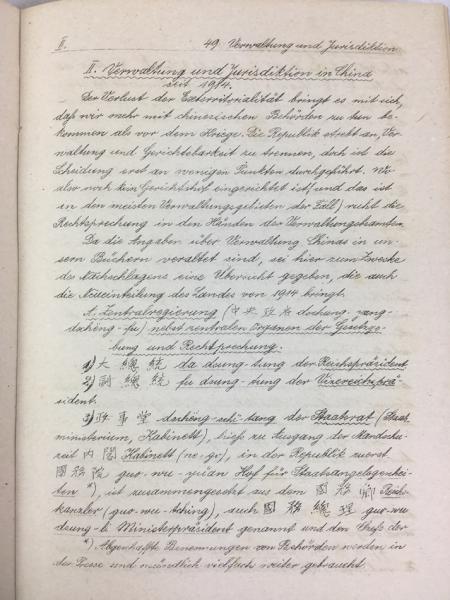 II. 49. Verwaltung und Jurisdiktion
II. Verwaltung und Jurisdiktion in China
seit 1914.
Der Verlust der Exterritorialität bringt es mit sich,
daß wir mehr mit chinesischen Behörden zu tun be-
kommen als vor dem Kriege. Die Republik strebt an, Ver-
waltung und Gerichtsbarkeit zu trennen, doch ist die
Scheidung erst an wenigen Punkten durchgeführt. Wo
also noch kein Gerichtshof eingerichtet ist (und das ist
in den meisten Verwaltungsgebieten der Fall) ruht die
Rechtsprechung in den Händen des Verwaltungsbeamten.
Da die Angaben über Verwaltung Chinas in un-
sern Büchern veraltet sind, sei hier zum Zwecke
des Nachschlagens eine Übersicht gegeben, die auch
die Neueinteilung des Landes von 1914 bringt.
A. Zentralregierung (中央政府 dschung-yang-
dschëng-fu) nebst zentralen Organen der Gesetzge-
bung und Rechtsprechung.
1) 大總統 da dsung-tung der Reichspräsident
2) 副總統 fu dsung-tung der Vizereichsprä-
sident.
3) 政事堂 dschëng-schï-tang der Staatsrat (Staats-
ministerium, Kabinett), hieß zu Ausgang der Mandschu-
zeit 內閣 Kabinett (ne-go), in der Republik zuerst
國務院 guo-wu-yüan Hof für Staatsangelegenhei-
ten *), ist zusammengesetzt aus dem 國務卿 Reichs-
kanzler (guo-wu-tsching), auch 國務總理 guo-wu-
dsung-li Ministerpräsident genannt und den Chefs der
*) Abgeschaffte Benennungen von Behörden werden in
der Presse und mündlich vielfach weiter gebraucht.